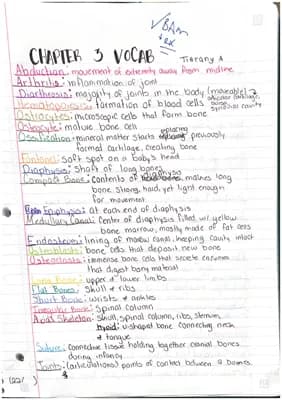 ✓BAM
CHAPTER 3 VOCAB Tierany A
Abduction: movement of extremity away from midline
Arthritis: inflammation of joint
Diarthrosis: majority of joints in the body (moveable)→
articular cartilage,
synovial cavity
Hematopoiesis: formation of blood cells
Osteocytes: microscopic cells that form bone
Osteocyte: mature bone cell
Ossification: mineral matter starts replacing previously
formed cartilage, creating bone
Fontanel: soft spot on a baby's head
Diaphysis: shaft of long bones
Compact Bone: contents of diaphysis makes long
bone strong, hard, yet light enough
for movement
Epiphysis: at each end of diaphysis
Medullary Canal: center of diaphysis filled w/ yellow
bone marrow, mostly made of fat cells
Endosteum: lining of marrow canal, keeping cavity intact
Osteoblasts: bone cells that deposit new bone
Osteoclasts: immense bone cells that secrete enzymes
that digest bony material
Long Bone: upper & lower limbs
Flat Bones: skull & ribs
Short Bone: wrists & ankles
Irregular Bone: spinal column
Axial Skeleton: skull, spinal column, ribs, sternum,
hyoid: u-shaped bone connecting neck
& tongue
Suture: connective tissue holding together cranial bones
during infancy
Joints: (articulations) points of contact between 2 bones